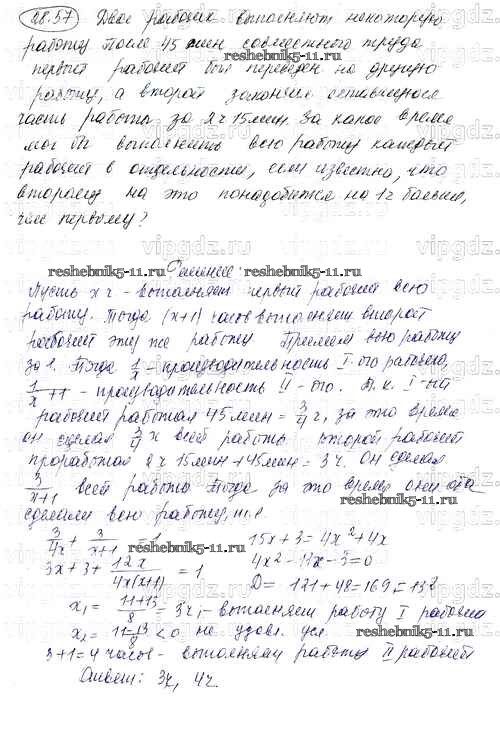 28.57 Двое рабочих выполняют некоторую
работу после 45 мин совместного труда
первый рабочий был переведен на другую
работу, а второй закончил оставшуюся
часть работы за 2ч 15мин. За какое время
мог бы выполнить всю работу каждый
рабочий в отдельности, если известно, что
второму на это понадобится на 1ч больше,
чем первому?
Решение
reshebnik5-11.ru reshebnik5-11.ru
Пусть x ч - выполняет первый рабочий всю
работу. Тогда (x+1) часов выполняет второй
рабочий эту же работу. Примем всю работу
за 1. Тогда 1/x - производительность I-ого рабочего,
1/x+1 - производительность II-ого. Т.к. I-ый
рабочий работал 45мин = 3/4 ч, за это время
он сделал всей работы второй рабочий
проработал 2ч 15мин+45мин=3ч. Он сделал
3/x+1 всей работы Тогда за это время они оба
сделали всю работу, т.е
reshebnik5-11.ru
3/4x + 3/x+1 = 1 15x+3=4x²+4x
3x+3+12x/4x(x+1) = 1 4x²-11x-3=0
D= 121+48=169=13²
x₁= 11+13/8 = 3ч - выполняет работу I рабочий
x₂= 11-13/8 <0 не удовл. усл.
3+1=4 часов - выполняет работу II рабочий
reshebnik5-11.ru
Ответ: 3ч, 4ч
vipgdz.ru